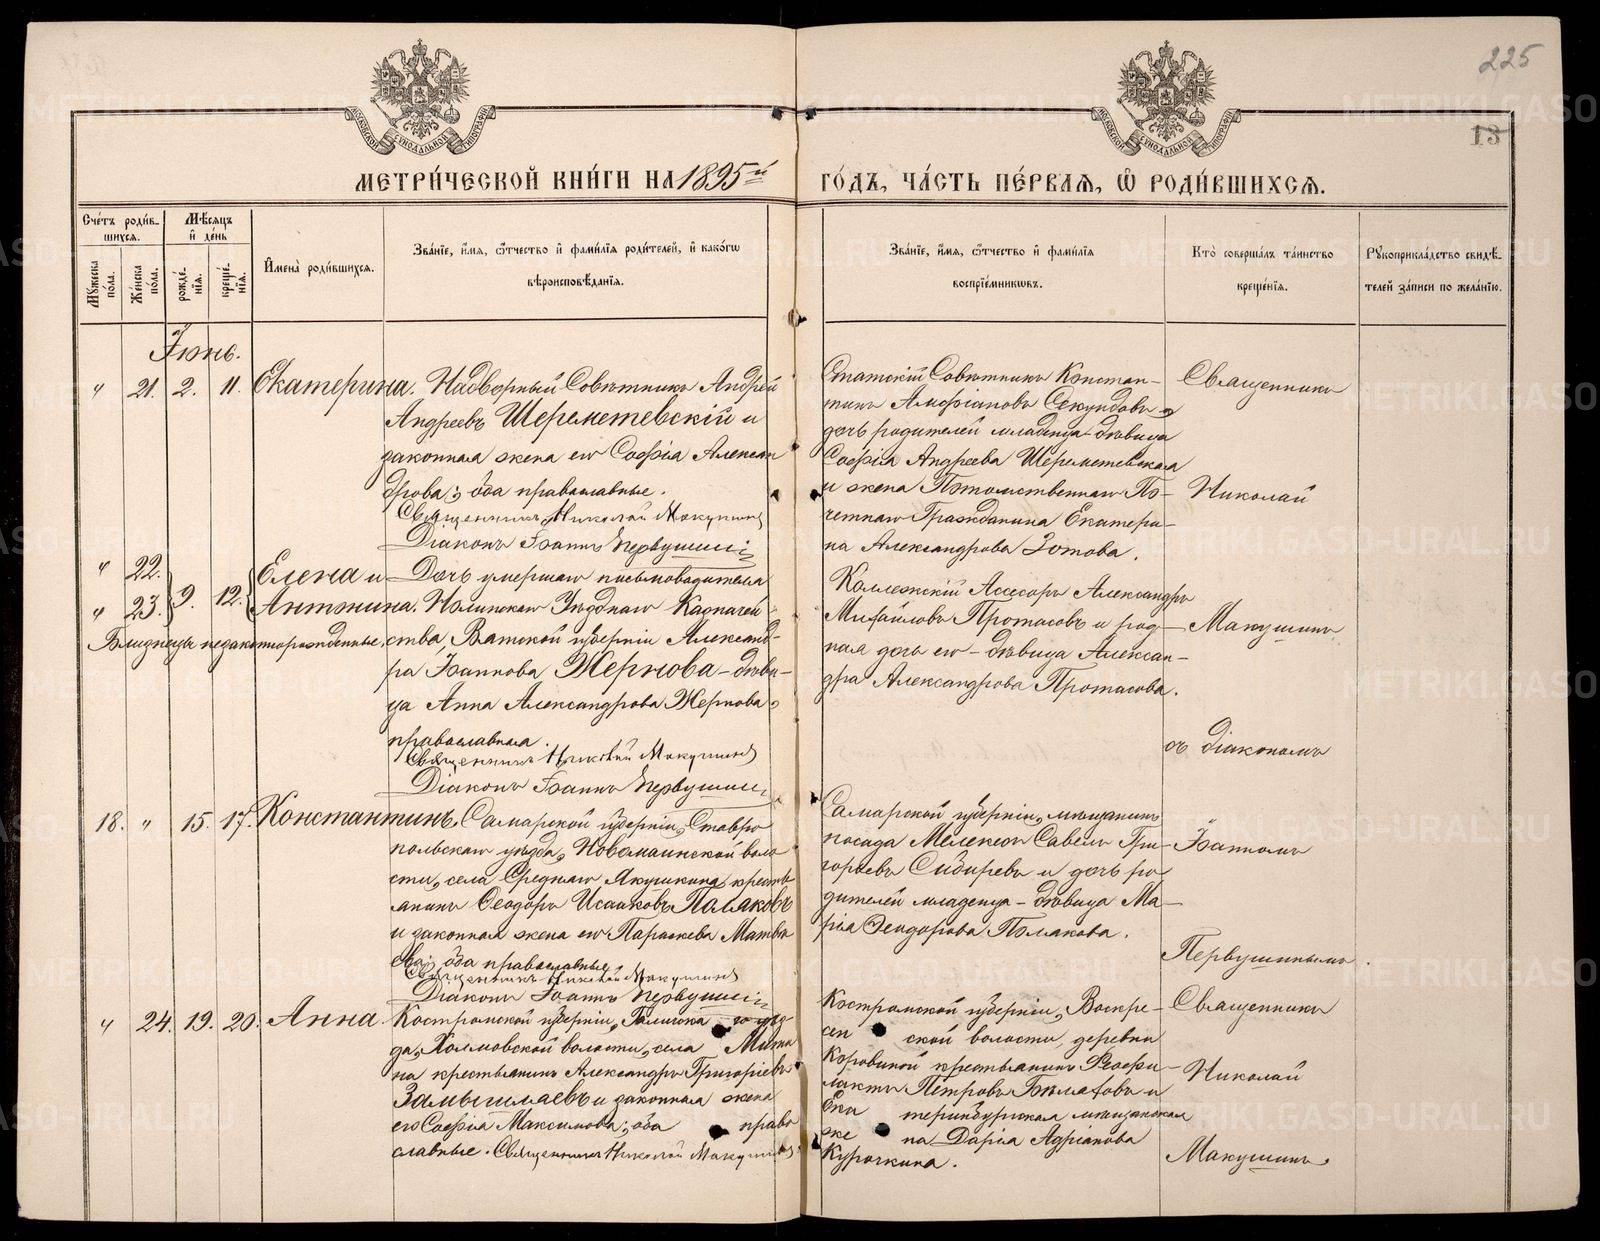 225
13
МЕТРИ́ЧЕСКОЙ КНИ́ГИ НА 1895й
ГО́ДЪ, ЧА́СТЬ ПЕ́РВАЯ, Ѿ РОДИ́ВШИХСЯ.
Сче́тъ роди́в-
шихся.
Мѣ́сяцъ
и де́нь
Му́жеска по́ла.
Же́нска по́ла.
рожде́-
нія.
креще́-
нія.
Имена̀ роди́вшихся.
Зва́ніе, и́мя, ѻ́тчество и фами́лія роди́телей, и како́гѡ
вѣроисповѣ́данія.
Зва́ніе, и́мя, ѻ́тчество и фами́лія
воспріе́мникѡвъ.
Кто̀ соверша́лъ та́инство
креще́нія.
Рукоприкла́дство свидѣ́-
телей за́писи по жела́нію.
Іюнь.
" 21. 2. 11. Екатерина. Надворный Совѣтникъ Андрей
Андреевъ Шереметевскій и
законная жена его Софія Алексан
дрова; оба православные.
Священникъ Николай Макушинъ
Діаконъ Іоаннъ Первушинъ
Статскій Совѣтникъ Констан-
тинъ Амфіановъ Секундовъ и
дочь родителей младенца дѣвица
Софія Андреева Шереметевская
и жена Потомственнаго По-
четнаго Гражданина Екатери-
на Александрова Зотова.
Священникъ
Николай
" 22.
" 23. 9. 12. Елена и
Антонина.
Близнецы незаконнорожденные.
Дочь умершаго письмоводителя
Нолинскаго Уѣзднаго Казначей-
ства, Вятской губерніи Александ-
ра Іоаннова Жернова - дѣви-
ца Анна Александрова Жернова,
православная.
Священникъ Николай Макушинъ
Діаконъ Іоаннъ Первушинъ
Коллежскій Ассесоръ Александръ
Михайловъ Протасовъ и род-
ная дочь его - дѣвица Алексан-
дра Александрова Протасова.
Макушинъ
съ діакономъ
18. " 15. 17. Константинъ. Самарской губерніи, Ставро
польскаго уѣзда, Новомаинской воло
сти, села Средняго Якушкина, кресть
янинъ Ѳеодоръ Исааковъ Поляковъ
и законная жена его Параскева Матвѣ
ева; оба православные
Священникъ Николай Макушинъ
Діаконъ Іоаннъ Первушинъ
Самарской губерніи, мѣщанинъ
посада Мелекеса Савелъ Гри-
горьевъ Сибиревъ и дочь ро-
дителей младенца - дѣвица Ма-
рія Ѳеодорова Полякова.
Іоанномъ
Первушинымъ.
" 24. 19. 20. Анна. Костромской губерніи, Галичска го уѣз
да, Холмовской волости, села Мити
на крестьянинъ Александръ Григорьевъ
Замышляевъ и законная жена
его Софія Максимова; оба право
славные. Священникъ Николай Макушинъ
Костромской губерніи, Воскре-
сен ской волости, деревни
Коровиной крестьянинъ Ѳеофи-
лактъ Петровъ Булатовъ и
Ека теринбургская мѣщанская
же на Дарія Адріанова
Курочкина.
Священникъ
Николай
Макушинъ.